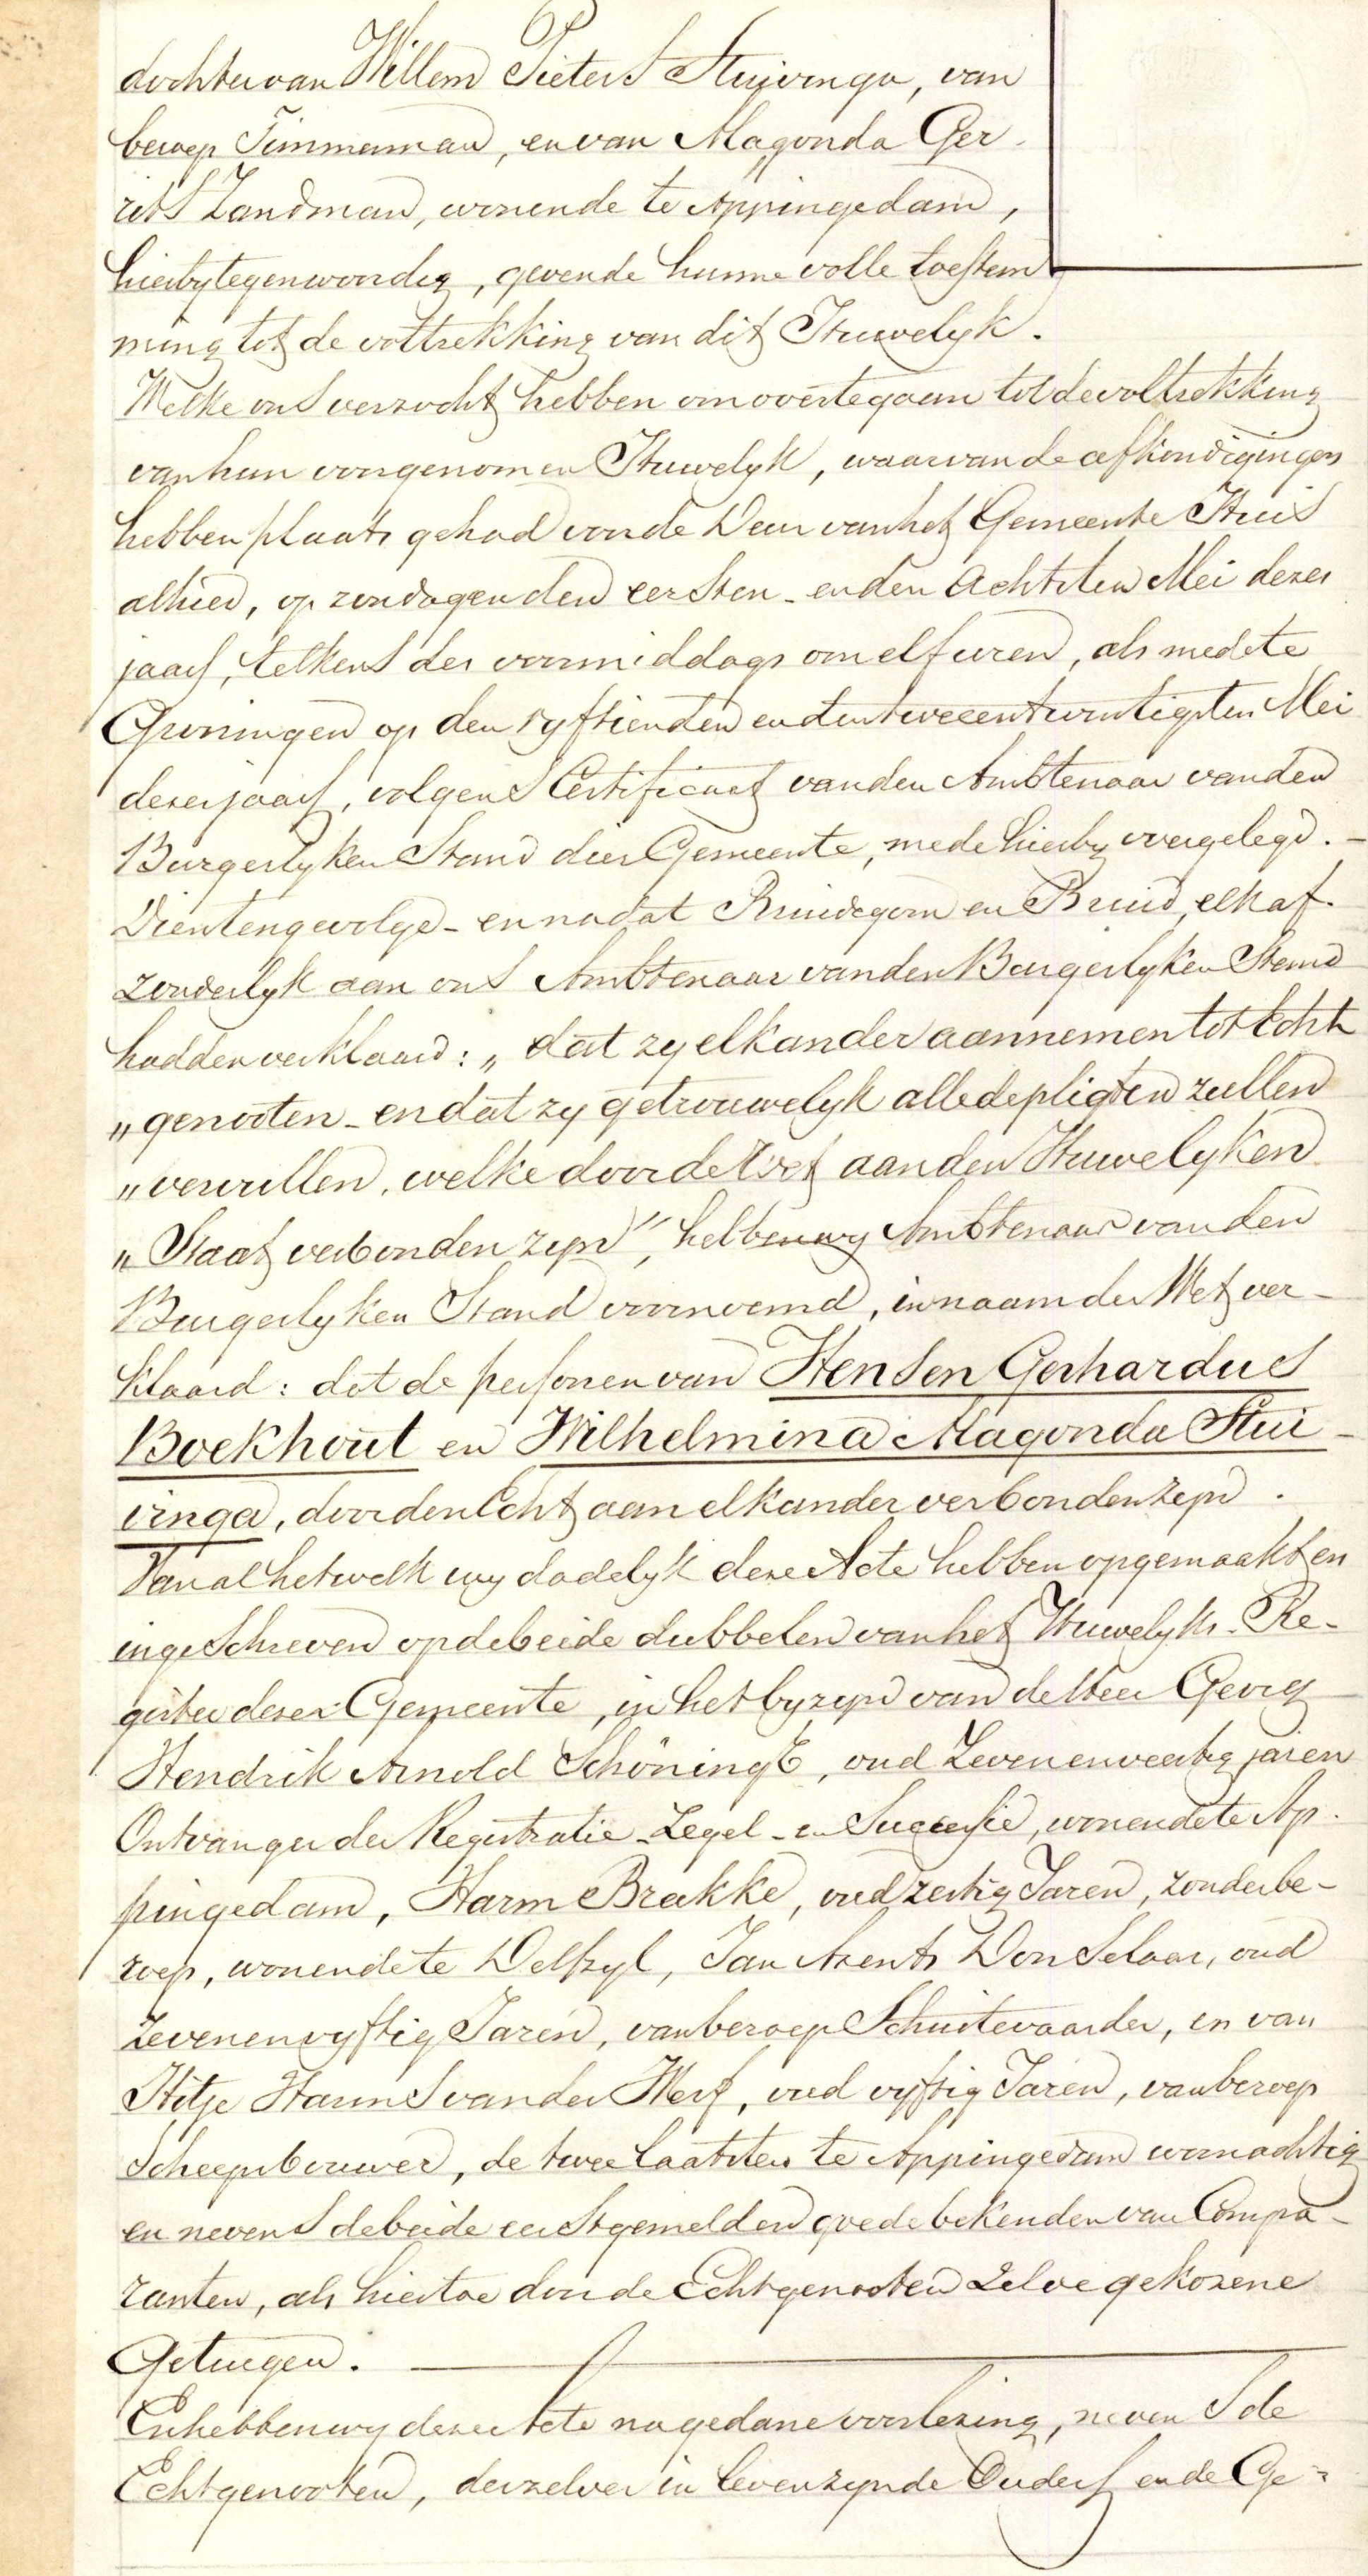 dochter van Willem Pieters Stuivinga, van
beroep Timmerman, en van Magonda Ger-
rits Zandman, wonende te Appingedam,
hierby tegenwoordig, gevende hunne volle toestem
ming tot de voltrekking van dit Huwelyk.
Welke ons verzocht hebben om over te gaan tot de voltrekking
van hun voorgenomen Huwelyk, waarvan de afkondigingen
hebben plaats gehad voor de Deur van het Gemeente Huis
alhier, op zondagen den eersten - en den Achtsten Mei dezes
jaars, telkens des voormiddags om elf uren, als mede te
Groningen op den vyftienden en den tweeentwintigsten Mei
dezes jaars, volgens Certificaat van den Ambtenaar van den
Burgerlyken Stand dier Gemeente, mede hierby overgelegd. -
Dientengevolge - en nadat Bruidegom en Bruid, elk af-
zonderlyk aan ons Ambtenaar van den Burgerlyken Stand
hadden verklaard: „ dat zy elkander aannemen tot Echt
„ genooten - en dat zy getrouwelyk alle de pligten zullen
„ vervullen, welke door de Wet aan den Huwelyken
„ Staat verbonden zyn ", hebben wy Ambtenaar van den
Burgerlyken Stand voornoemd, in naam der Wet ver-
klaard: dat de personen van Hensen Gerhardus
Boekhout en Wilhelmina Magonda Stui-
vinga, door den Echt aan elkander verbonden zyn.
Van al hetwelk wy dadelyk deze Acte hebben opgemaakt en
ingeschreven op de beide dubbelen van het Huwelyks-Re-
gister dezer Gemeente, in het byzyn van de Heer Georg
Hendrik Arnold Schöningh, oud Zevenenveertig jaren
Ontvanger der Registratie - Zegel - en Successie, wonende te Ap-
pingedam, Harm Brakke, oud zestig Jaren, zonder be-
roep, wonende te Delfzyl, Jan Arents Donselaar, oud
Zevenenvyftig Jaren, van beroep Schuitevaarder, en van
Hitje Harms van der Werf, oud vyftig Jaren, van beroep
Scheepsbouwer, de twee laatsten te Appingedam woonachtig
en nevens de beide eerstgemelden goede bekenden van Compa-
ranten, als hiertoe door de Echtgenooten zelve gekozene
Getuigen.
En hebben wy deze Acte na gedane voorlezing, nevens de
Echtgenooten, derzelver in leven zynde Ouders en de Ge-